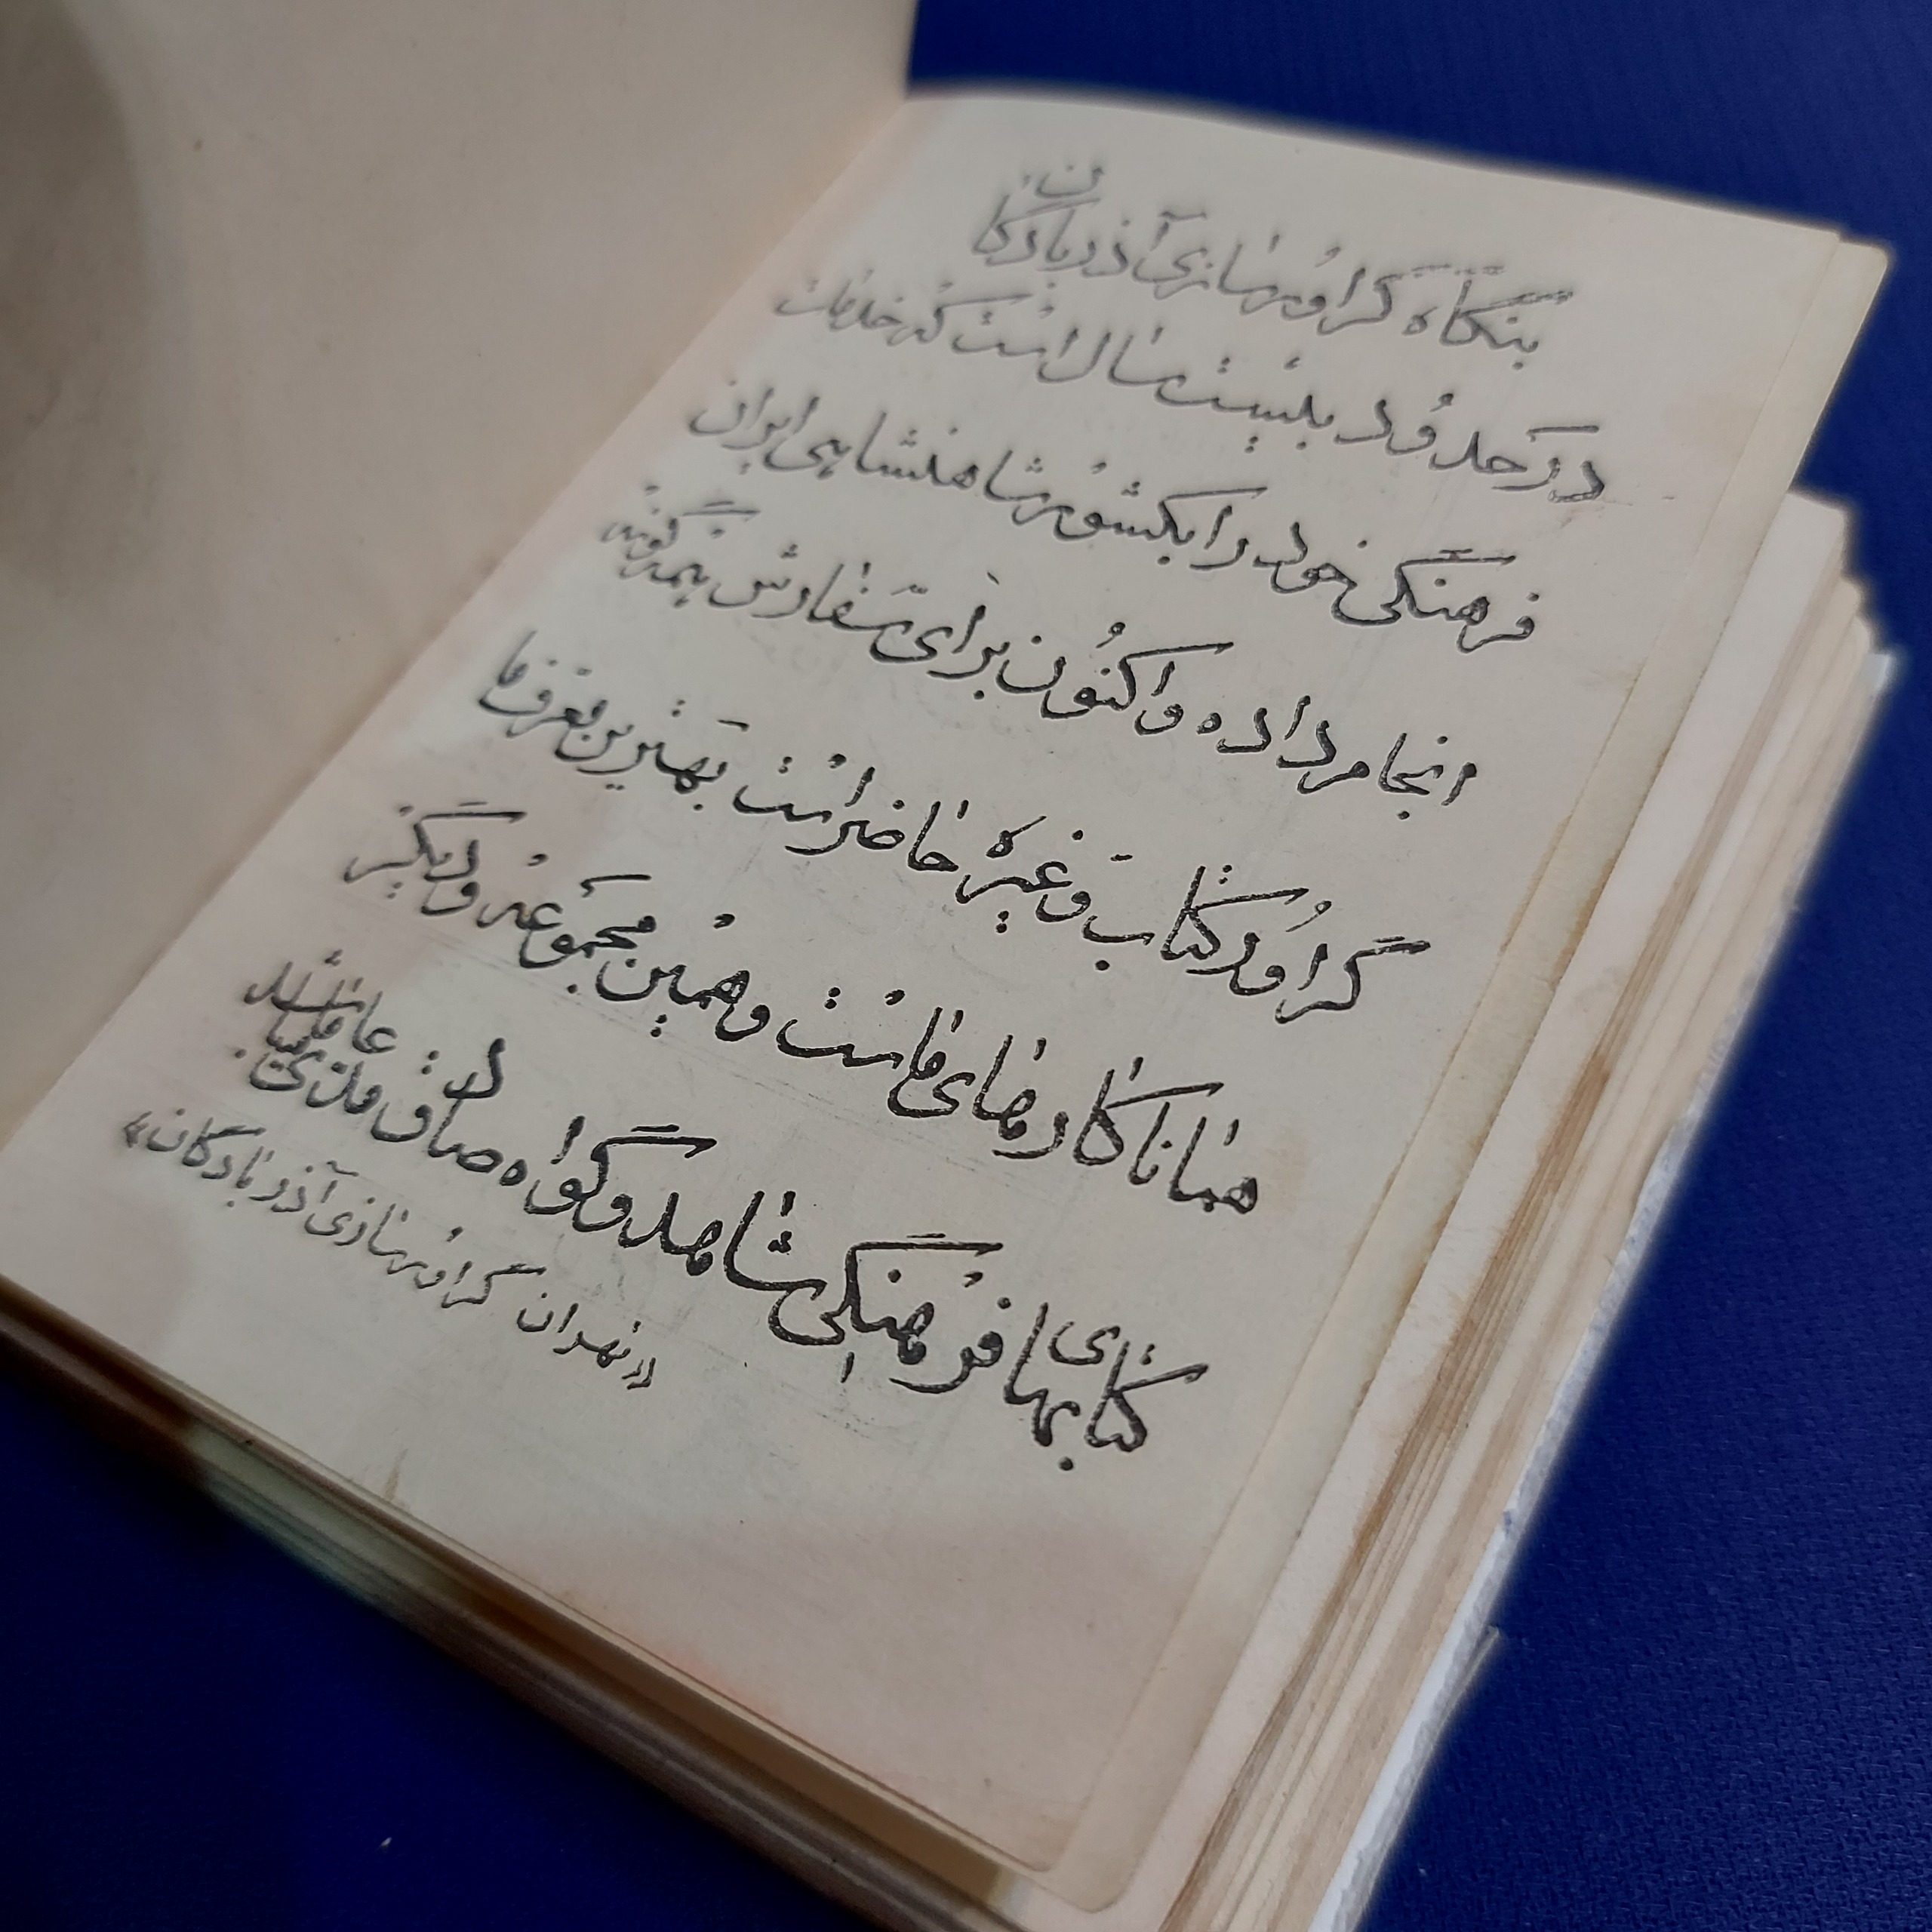 بنگاه گراورسازی آذربادگان
در حدود بیست سال است که خدمات
فرهنگی خود را بکشور شاهنشاهی ایران
انجام داده و اکنون برای سفارش همه گونه
گراور کتاب و غیره حاضر است بهترین معرف ما
همانا کارهای ماست و همین مجموعه و دیگر
کتابهای فرهنگی شاهد و گواه صادق مدعای ما میباشد
«تهران گراورسازی آذربادگان»